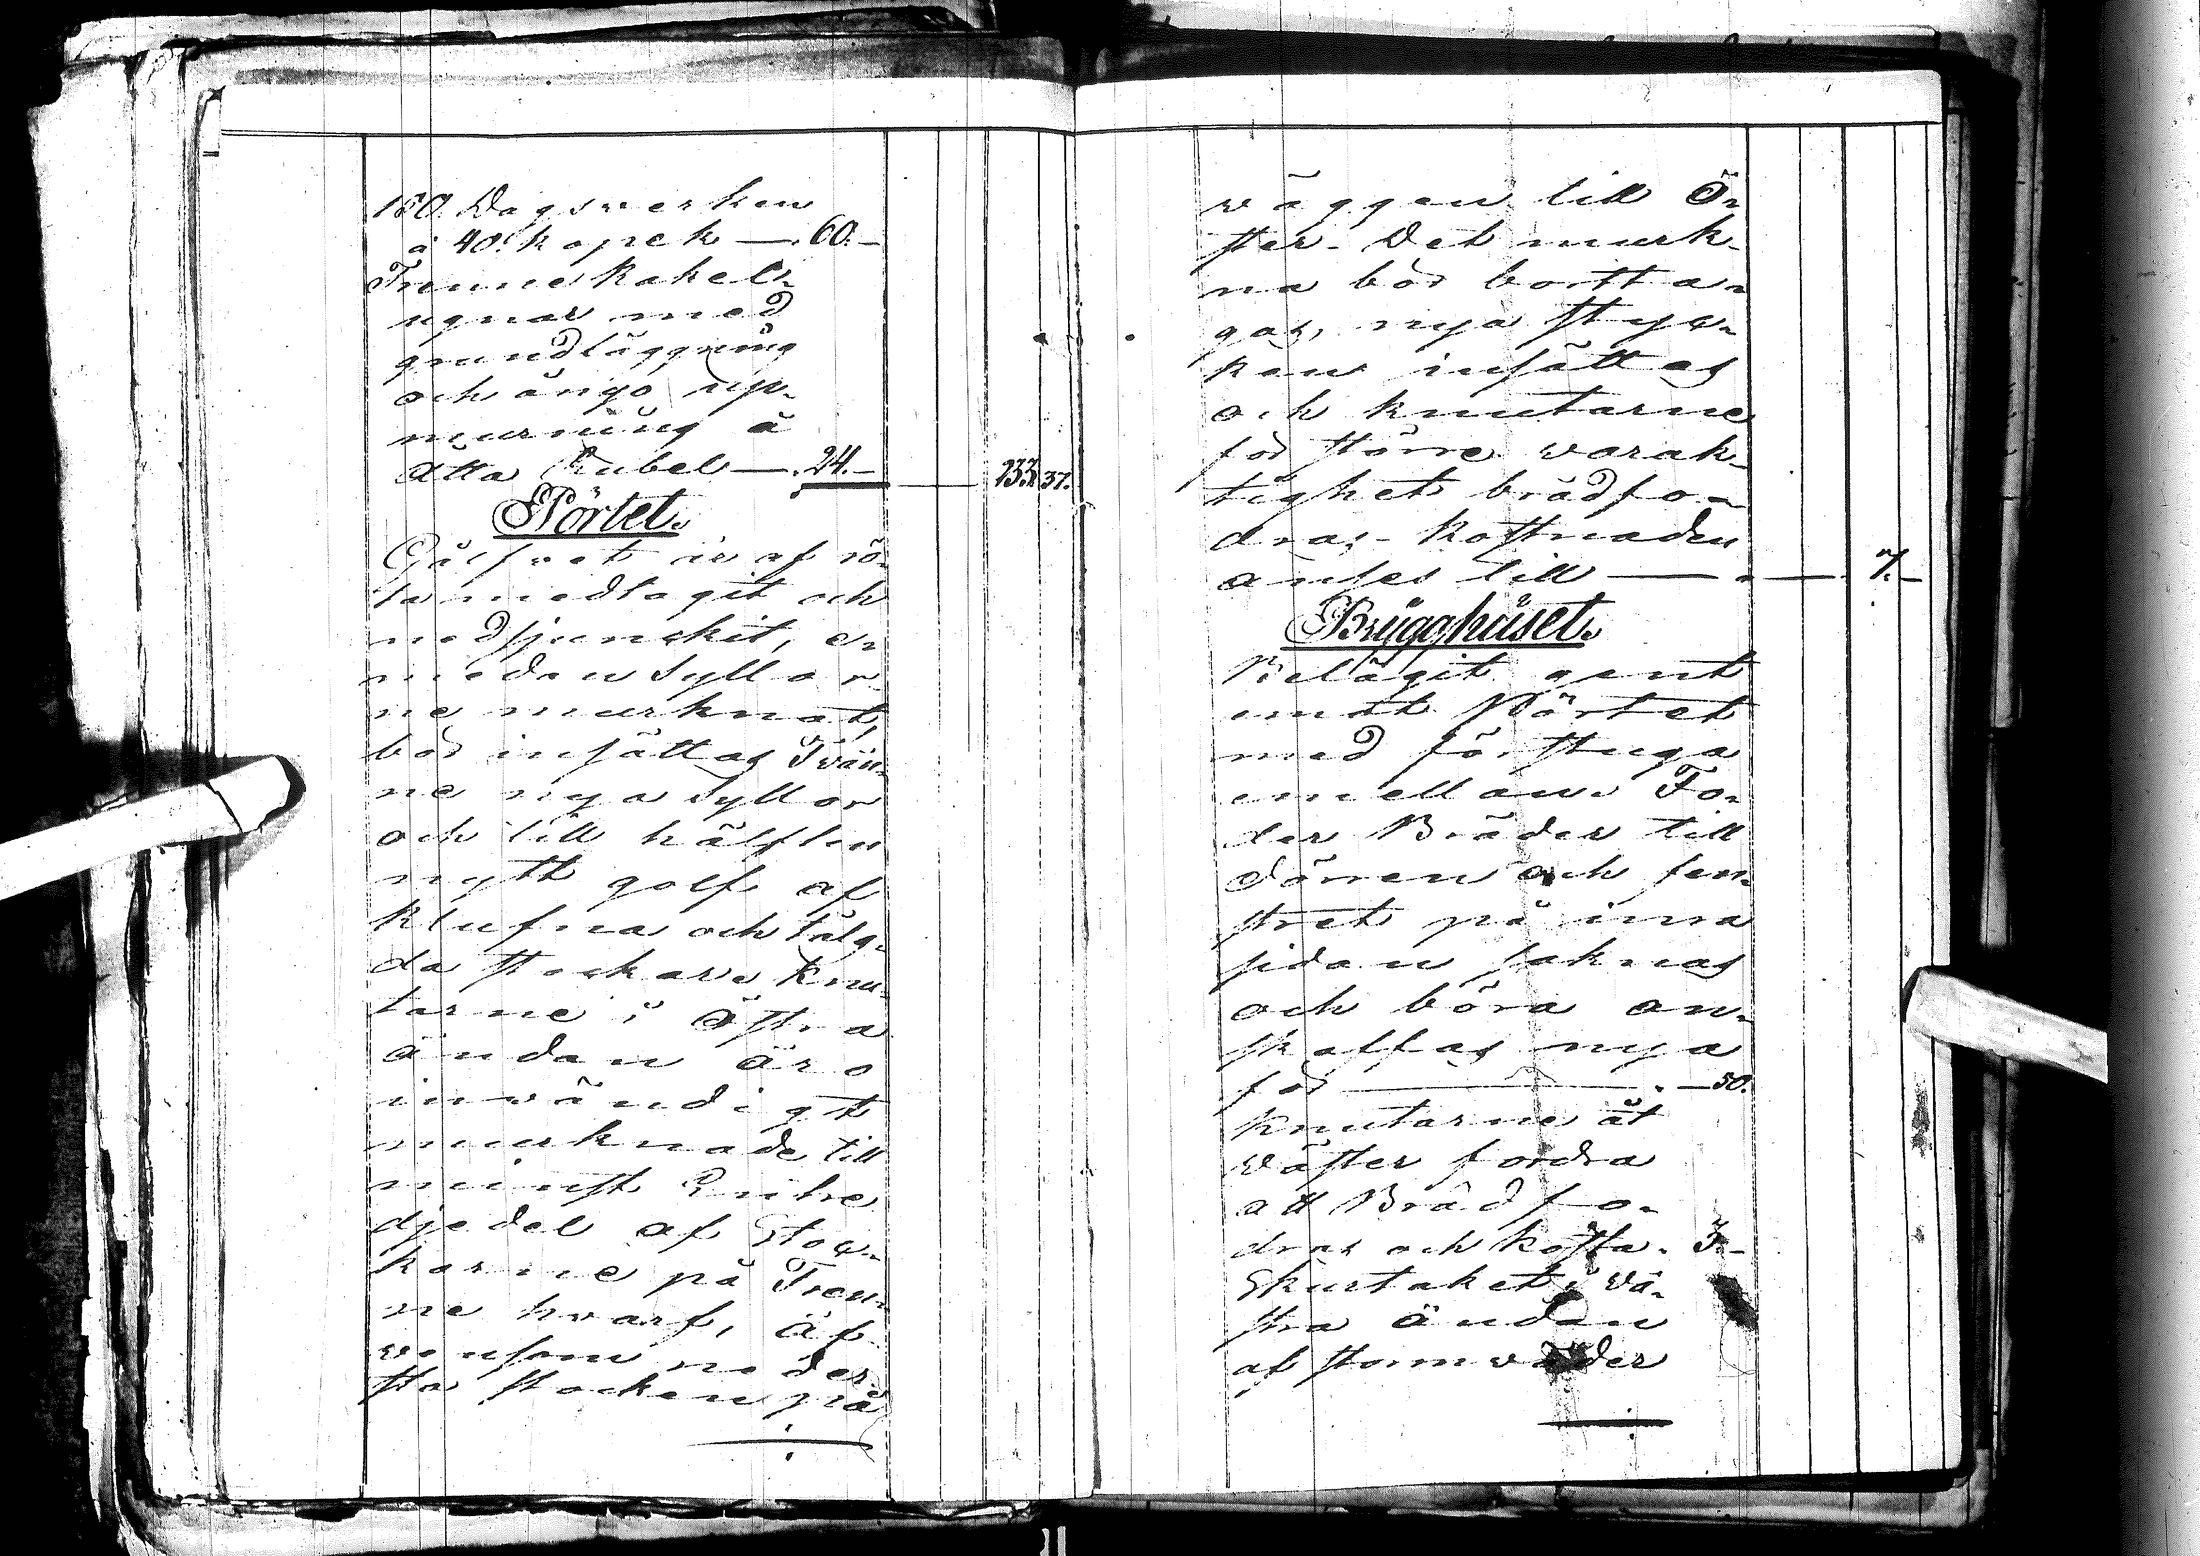 150. Dagsverken
á 40. kopek — . 60. —
Trenne Kakel-
ugnar med
grundläggning
och ångo up-
murning á
Åtta Rubel — . 24. — — 133. 37.
Pörtet.
Gålfvet är af rö-
ta medtagit och
nedsjunckit, e-
medan Syllar-
ne murknat,
bör insättas Tvän-
ne nya Syllor
och till hälften
nytt golf af
klufna och tälg-
da stockar. Knu-
tarne i Östra
ändan äro
invändigt
murknade till
minst En tre
djedel af Stoc-
karne på Tren-
ne hvarf, äf-
vensom neder-
sta stocken på
väggen till Ö-
ster. Det murk-
na bör bortta-
gas, nya styc-
ken insättas
och knutarne
för större varak-
tighet brädfo-
dras. Kostnaden
anses till — . — 7. —
Brygghuset.
Belägit gent
emot Pörtet
med förstuga
emellan. Fo-
der Bräder till
dörren och fen-
stret på inra
sidan saknas
och böra an-
skaffas nya
för — . — 50.
Knutarne åt
Väster fordra
att Brädfo-
dras och kosta . 3. —
Skurtaket i Vä-
stra ändan
af stormväder